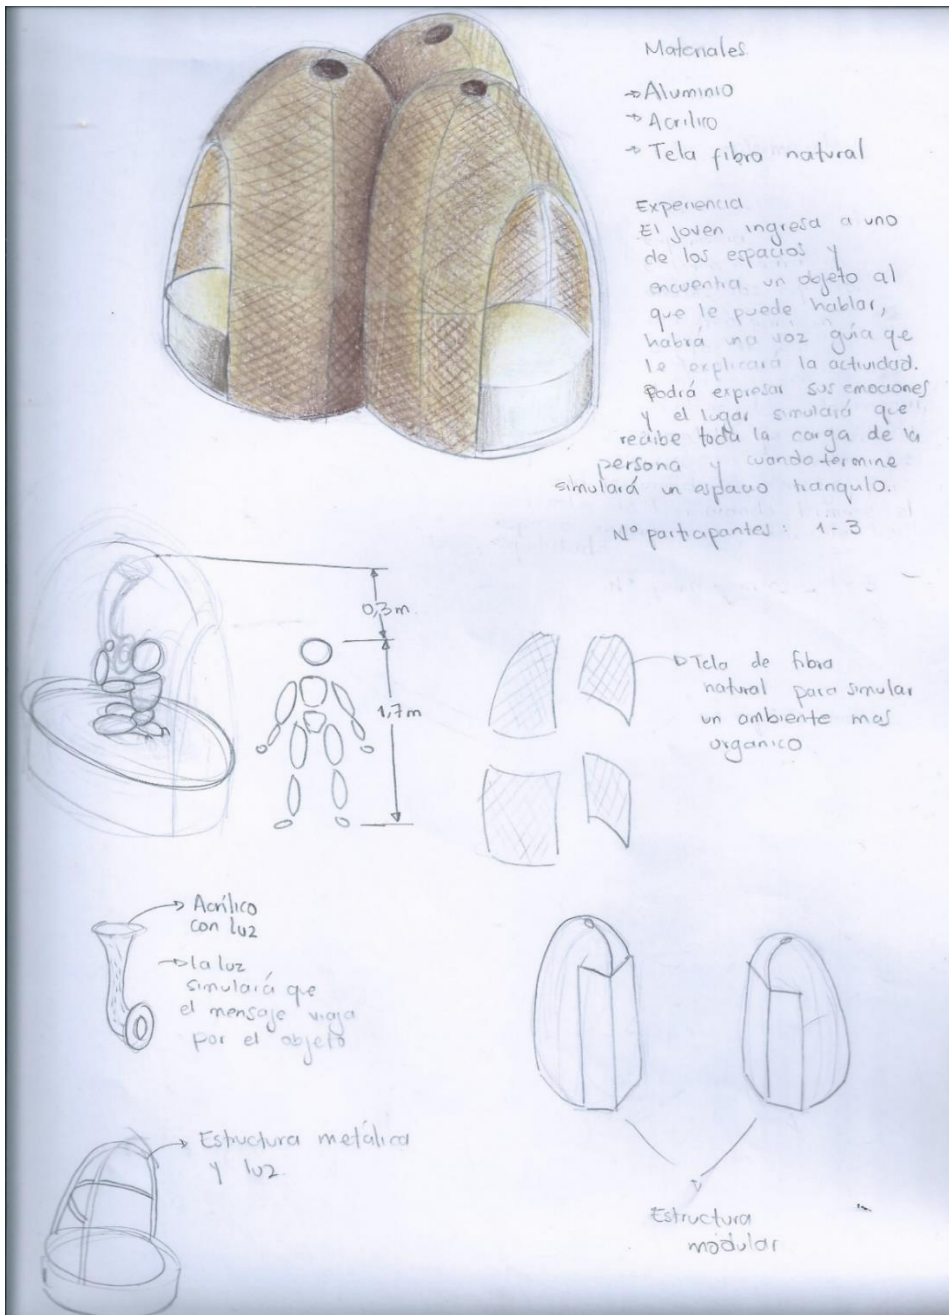 Materiales
→ Aluminio
→ Acrílico
→ Tela fibra natural
Experiencia
El joven ingresa a uno
de los espacios y
encuentra un objeto al
que le puede hablar,
habrá una voz guía que
le explicará la actividad.
Podrá expresar sus emociones
y el lugar simulará que
recibe toda la carga de la
persona y cuando termine
simulará un espacio tranquilo.
Nº participantes: 1-3
0,3m.
1,7m
Tela de fibra
natural para simular
un ambiente mas
organico
Acrílico
con luz
la luz
simulará que
el mensaje viaja
por el objeto
Estructura metálica
y luz
Estructura
modular